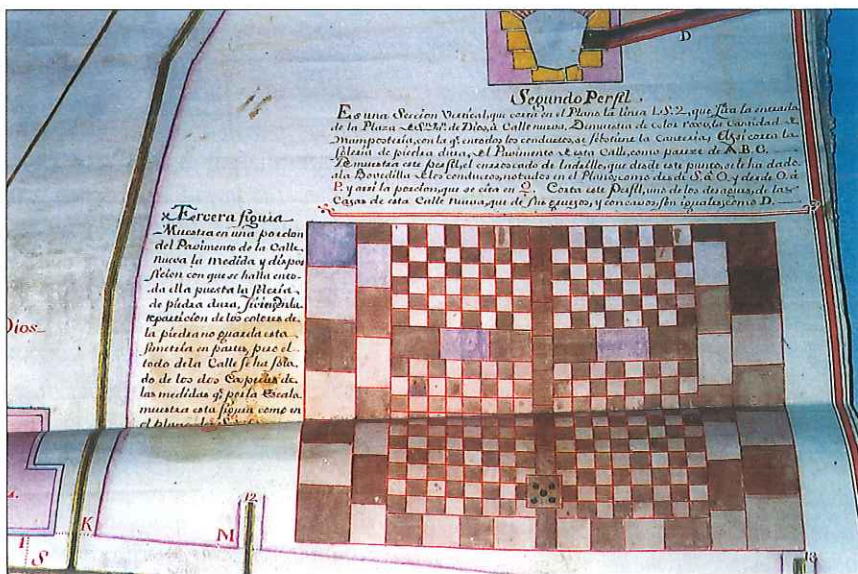 D
Segundo Perfil.
Es una Seccion Vertical, que corta en el Plano la linea 1.S.2, que fixa la entrada
de la Plaza de Sn. Jn. de Dios, à Calle nueva, Demuestra de color roxo, la Cantidad de
Mamposteria, con la qe. en todos los conductos, se sostiene la Canteria, Assi corta la
soleria de piedra dura, del Pavimento de esta Calle, como parece de A.B.C.
Demuestra este perfil, el enroscado de Ladrillo, que desde este punto, se le ha dado
ala Bovedilla de los conductos, notados en el Plano, como desde S. à O. y desde O. à
P. y assi la porcion, que se cita en Q. Corta este Perfil, uno de los desagues, de las
Casas de esta Calle Nueva, que de sus gruezos, y concavos, son iguales, como D.
Tercera figura
Muestra en una porcion
del Pavimento de la Calle
nueva la medida y dispo
sicion con que se halla en to-
da ella puesta la soleria
de piedra dura, si bien en la
reparticion de los colores de
la piedra no guarda esta
simetria en partes, pero el
todo de la Calle se ha sola
do de los dos Especies de
las medidas qe. por la Escala
muestra esta figura como en
el plano
Dios
12.
K
M
S
13